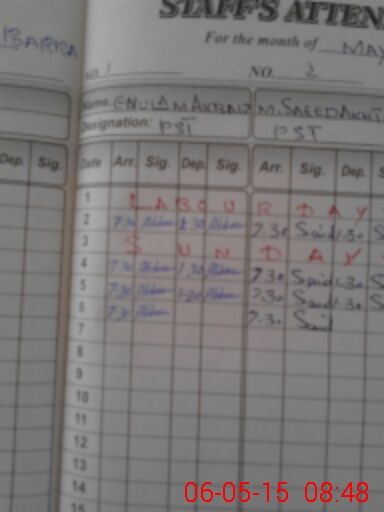 STAFF'S ATTEN
For the month of MAY
BARIZA
NO. 1 NO. 2
Name. GHULAM AKBAR M. SAEED AKHT
Designation: PST PST
Dep. Sig. Date Arr. Sig. Dep. Sig. Arr. Sig. Dep. S
1 LABOUR DAY
2 7.30 Akbar 7.30 Said 1.30 S
3 SUNDAY
4 7.30 Akbar 1.30 Akbar 7.30 Said 1.30 S
5 7.30 Akbar Akbar 7.30 Said 1.30 S
6 7.30 Akbar 7.30 Said
7
8
9
10
11
12
13
14
15
06-05-15 08:48